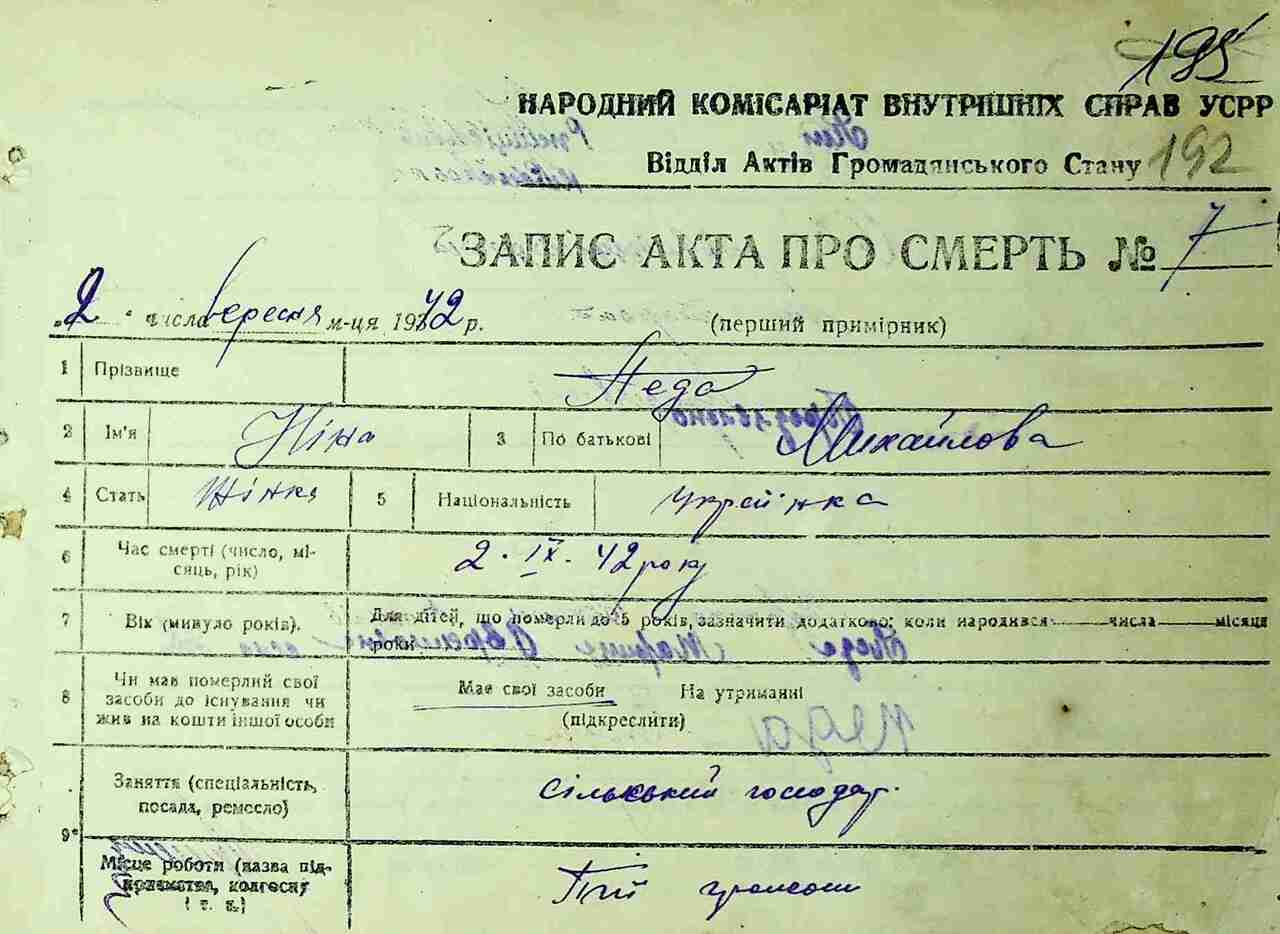 195
НАРОДНИЙ КОМІСАРІАТ ВНУТРІШНІХ СПРАВ УСРР
Відділ Актів Громадянського Стану 192
ЗАПИС АКТА ПРО СМЕРТЬ № 7
„2" числа вересня м-ця 1942 р. (перший примірник)
1 Прізвище Педа
2 Ім'я Ніна 3 По батькові Михайлова
4 Стать жінка 5 Національність українка
6 Час смерті (число, мі-
сяць, рік) 2. IX. 42 року
7 Вік (минуло років). Для дітей, що померли до 5 років, зазначити додатково: коли народився числа місяця
роки
8 Чи мав померлий свої
засоби до існування чи
жив на кошти іншої особи
Має свої засоби На утриманні
(підкреслити)
9 Заняття (спеціальність,
посада, ремесло) сільський господар.
Місце роботи (назва під-
приємства, колгоспу
і т. п.)